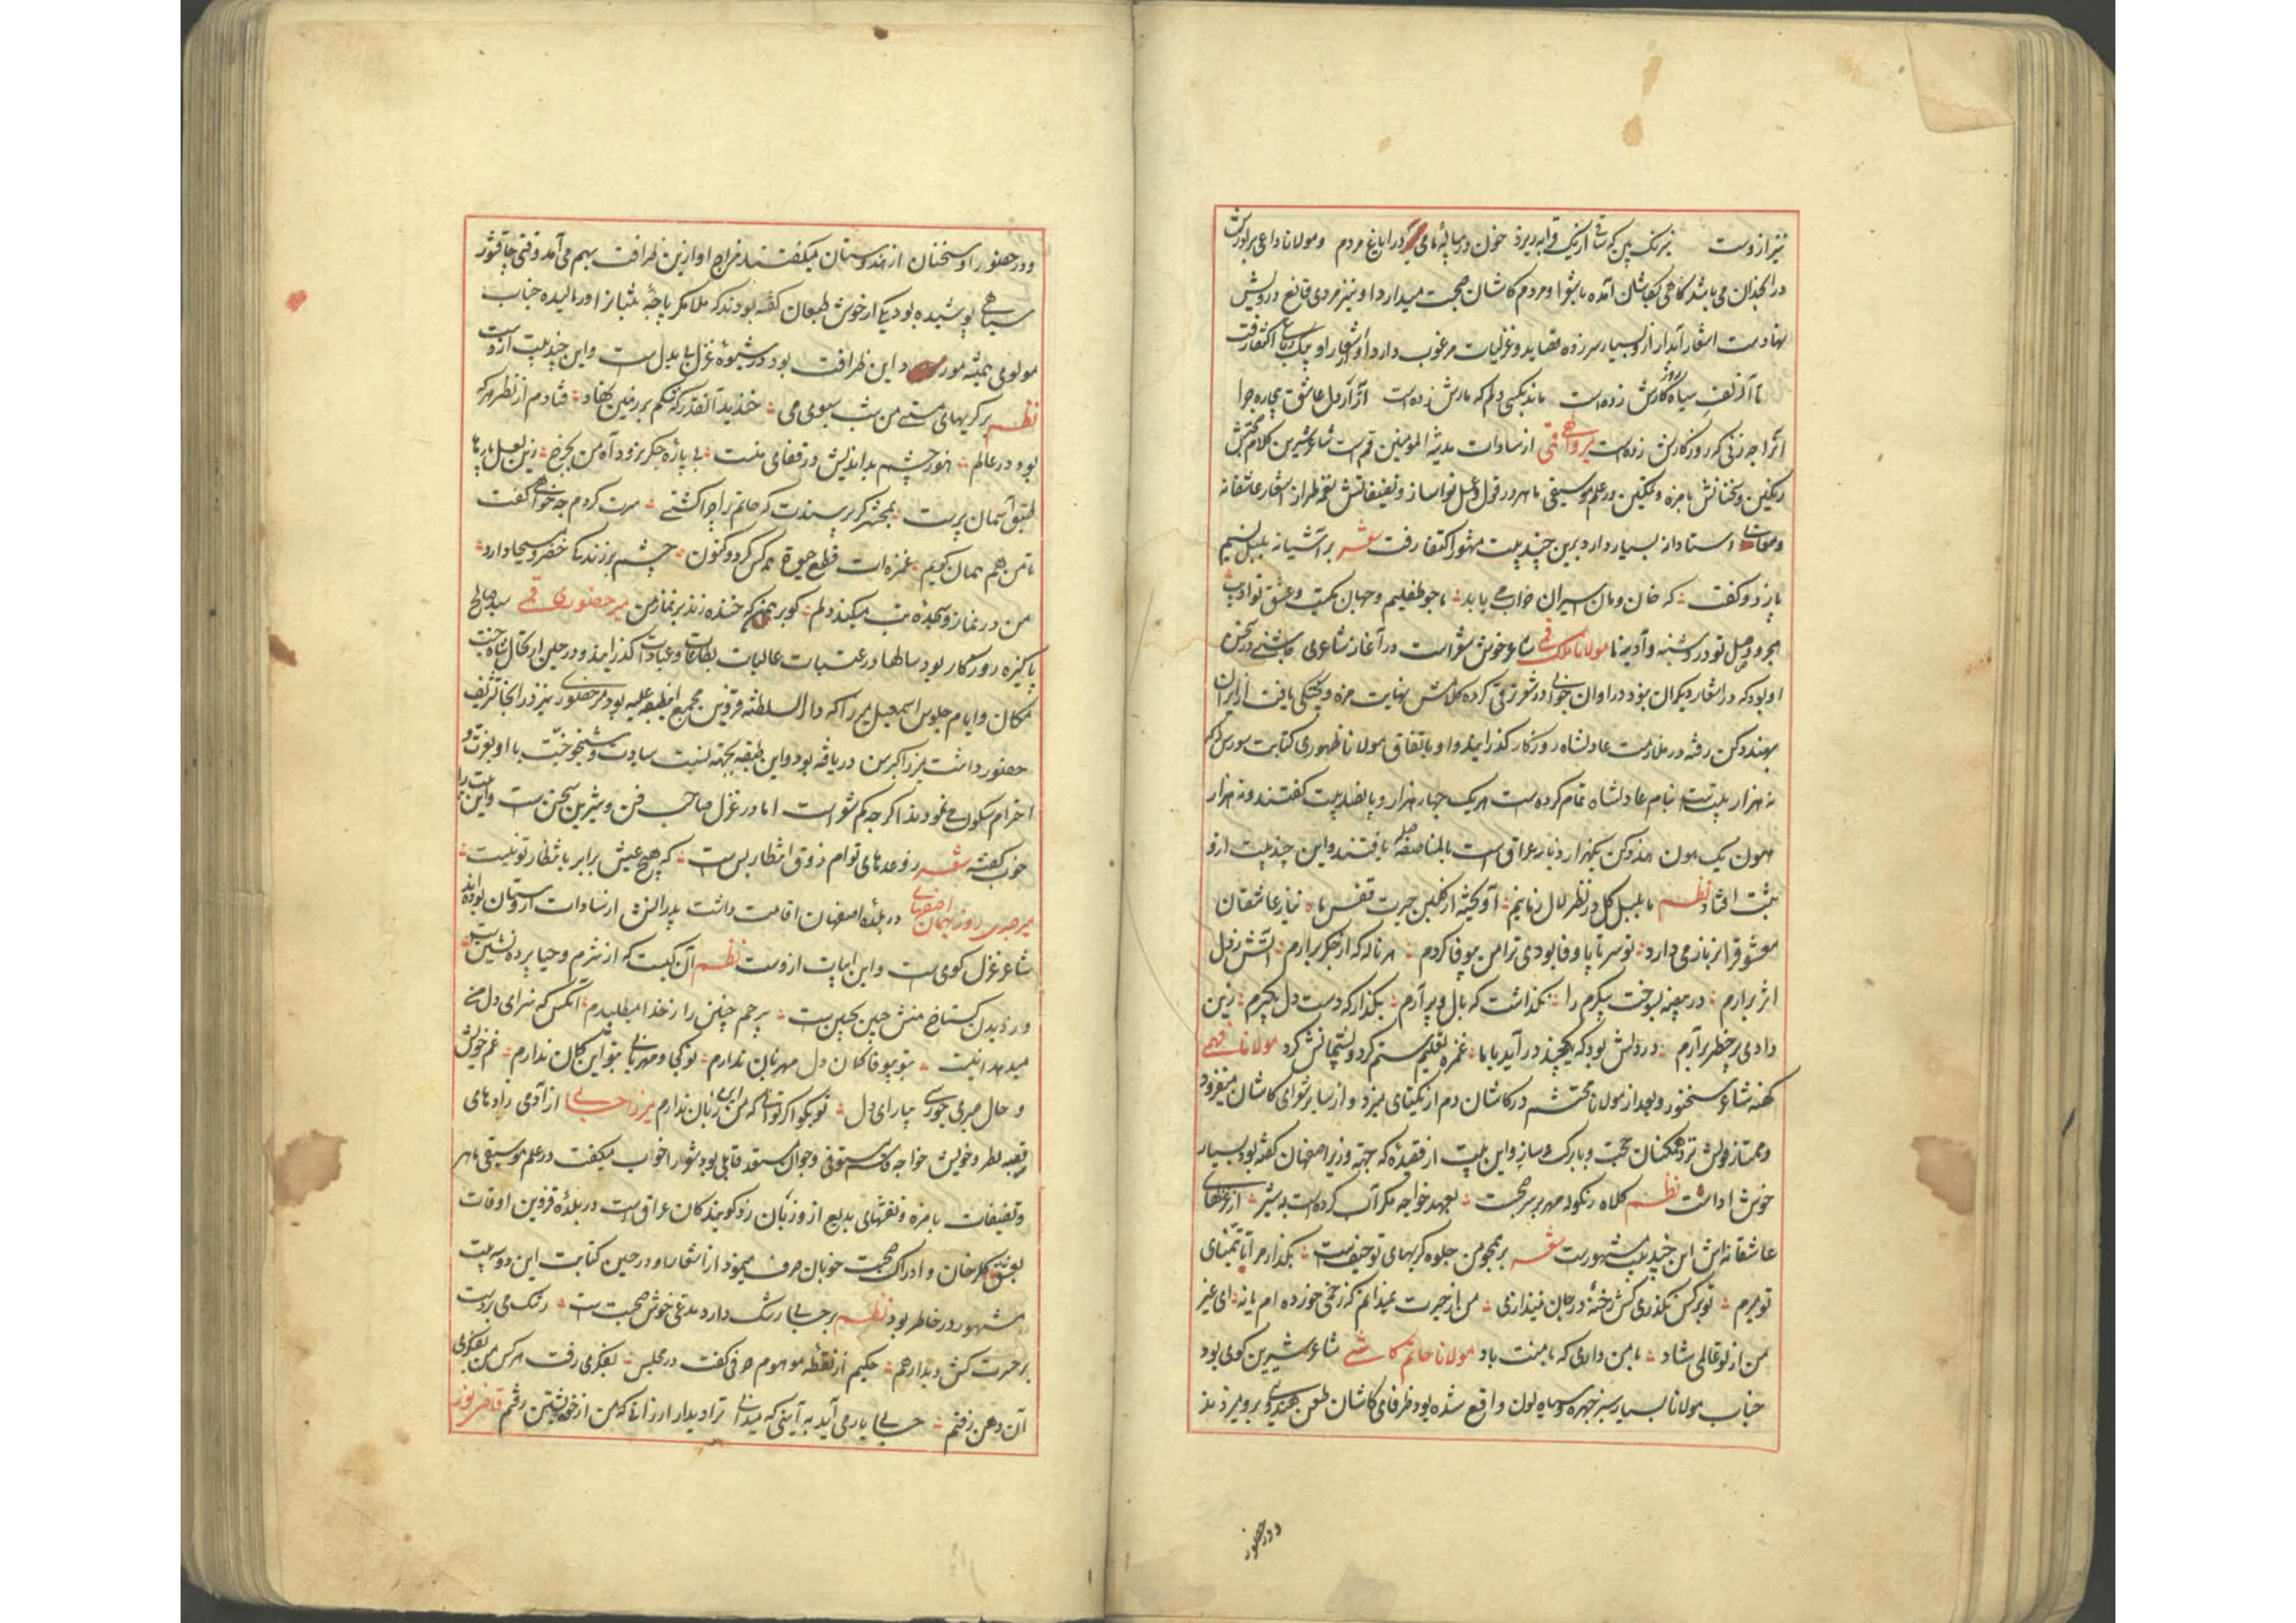 نیز ازوست نیرنک بین که ساقی ازنیک قرابه ریزد خون در پیاله ما می در ایاغ مردم و مولانا داعی برادرش
در انجدان می باشد کاهی بکاشان آمده با شعرا و مردم کاشان صحبت میدارد او نیز مردی قانع درویش
نهادست اشعار آبدار ازو بسیار سرزده قصاید و غزلیات مرغوب دارد از اشعار او بیک رباعی اکتفا رفت
تا آن زلف سیاه کارش زده است ماند بکسی دلم که مارش زده است آنرا دل عاشق بیچاره چرا
آنرا چه زنی که روزکارش زده است میر والهی قمی از سادات مدینة المومنین قم است شاعر شیرین کلام
رنکین و سخنانش با مزه و نمکین در علم موسیقی ماهر در قول و عمل نواساز و تصنیفاتش نغمه طراز اشعار عاشقانه
و استادانه بسیار دارد برین چند بیت مشهور اکتفا رفت شعر بر آشیانه بلبل نسیم
پا زد و کفت که خان و مان اسیران خراب می باید ما چو طفلیم و جهان مکتب و عشق تو ادیب
هجر و وصل تو درو شنبه و آدینه ما مولانا ملک قمی شاعر خوش شعر است در آغاز شاعری چاشنی در سخن
او بود که در اشعار دیکران نبود در اوان جوانی در شعر ترقی کرده کلامش نهایت مزه و پختکی یافت از ایران
بهند دکن رفته در ملازمت عادلشاه روزکار کذرانید و او باتفاق مولانا ظهوری کتاب
نه هزار بیتست بنام عادلشاه تمام کرده است هر یک چهار هزار و پانصد بیت کفتند و نه هزار
هون یک هون هند دکن یکهزار دینار عراق است بالمناصفه یافتند و این چند بیت ازو
ثبت افتاد نظم ما بلبل کل در نظر لال زبانیم آویخته از کلبن حیرت قفس ما نیاز عاشقان
معشوق را بر ناز می دارد تو سر تا پا وفا بودی ترا من بیوفا کردم هر ناله که از جکر برارم آتش ز دل
اثر برارم در بیضه بسوخت پیکرم را نکذاشت که بال و پر آرم بکذار که دست دل بکیرم زین
وادی پر خطر برآرم در دلش بود که یکچند در آید با ما غمزه تعلیم ستم کرد و پشیمانش کرد مولانا فهمی
کهنه شاعر سخنور و بعد از مولانا محتشم در کاشان دم از یکتای میزد و از سایر شعرای کاشان منفرد
و ممتاز قولش نزد همکنان حجت و بارک و ساز و این بیت از قصیده که جهة وزیر اصفهان کفته بود بسیار
خوش ادا است نظم کلاه زنکوله مهر بر سر بعهد خواجه مکر آب کرده است به شیر از غزلهای
عاشقانه اش این چند بیت مشهورست شعر بر همچو من جلوه کریهای تو حیفست بکذار مرا تا بتمنای
تو میرم تو بر کس نکذری کش رخنه در جان نیندازی من از حیرت نمیدانم که زخمی خورده ام یا نه ای غیر
من از تو عالمی شاد با من داری که با منت باد مولانا حاتم کاشی شاعر شیرین کوی بود
جناب مولانا بسیار سبز چهره و سیاه لون واقع شده بود ظرفای کاشان طعن هندی برو میزدند
ودر حضور
ودر حضور او سخنان از هندوستان میکفتند مزاج او ازین ظرافت بهم می آمد وقتی چاقشور
سیاهی پوشیده بود یکی از خوش طبعان کفته بودند که ملا مکر پاچه تنبانرا ورمالیده جناب
مولوی همیشه مورد این ظرافت بود در شیوه غزل بی بدل ست و این چند بیت ازوست
نظم بر کریهای مستی من شب سبوی می خندید آنقدر که شکم بر زمین نهاد فتادم از نظر هر که
بود در عالم هنوز چشم بداندیش در قفای منست بی پاره جکر نرود آه من بچرخ زین لعل پارها
طبق آسمان پرست بمحشر کر بپرسندت که حاتم را چرا کشتی سرت کردم چه خواهی کفت
تا من هم همان کویم غمزه ات قطع حیوة همه کس کرد و کنون چشم بر زندکی خضر و مسیحا دارد
من در نماز و سجده بت میکند دلم کو برهمن که خنده زند بر نماز من میر حضوری قمی سید صالح
پاکیزه روزکار بود سالها در عتبات عالیات بطاعات و عبادات کذرانید و در حین ارتحال شاه جنت
مکان و ایام جلوس اسمعیل میرزا که دار السلطنه قزوین مجمع این طبقه علیه بود میر حضوری نیز در انجا تشریف
حضور داشت میرزا کبر سن دریافته بود و این طبقه بجهة نسبت سیادت و شیخوخیت با او بعزت و
احترام سلوک می نمودند اکر چه کم شعر است اما در غزل صاحب فن و شیرین سخن ست و این بیت را
خوب کفته شعر ز وعدهای توام ذوق انتظار بس ست که هیچ عیش برابر بانتظار تو نیست
میر صبری روزبهان اصفهانی در بلده اصفهان اقامت داشت پدرانش از سادات اردستان بوده اند
شاعر غزل کوی ست و این ابیات ازوست نظم آن کیست که از شرم و حیا پرده نشین ست
وز دیدن کستاخ منش چین بجبین ست بیرحم چنین را ز خدا میطلبیدم آنکس که سزای دل من
میدهد اینست بتو بیوفا کمان دل مهربان ندارم تو کجا و مهربانی بتو این کمان ندارم غم خویش
و حال صبری بیارای دل تو بکو اکر توانی که من این زبان ندارم میرزا حسابی از آدمی زادهای
قصبه نطنز و خویش خواجه قاسم مستوفی و جوان مستعد قابلی بود شعر را خوب میکفت در علم موسیقی ماهر
و تصنیفات با مزه و نقشهای بدیع ازو زبان زد کویندکان عراق است در بلده قزوین اوقات
بعشق کلرخان و ادراک صحبت خوبان صرف مینمود از اشعار او در حین کتابت این دو سه بیت
مشهور در خاطر بود نظم بر حسابی رشک دارد مدعی خوش صحبت ست رشک می بردست
بر حسرت کش دیدار هم حکیم از نقطه موهوم حرفی کفت در مجلس بفکر می رفت هر کس من بفکر
آن دهن رفتم حسابی یار می آید به آیینی که میدانی ترا دیدار ارزانی که من از خویشتن رفتم قاضی نور